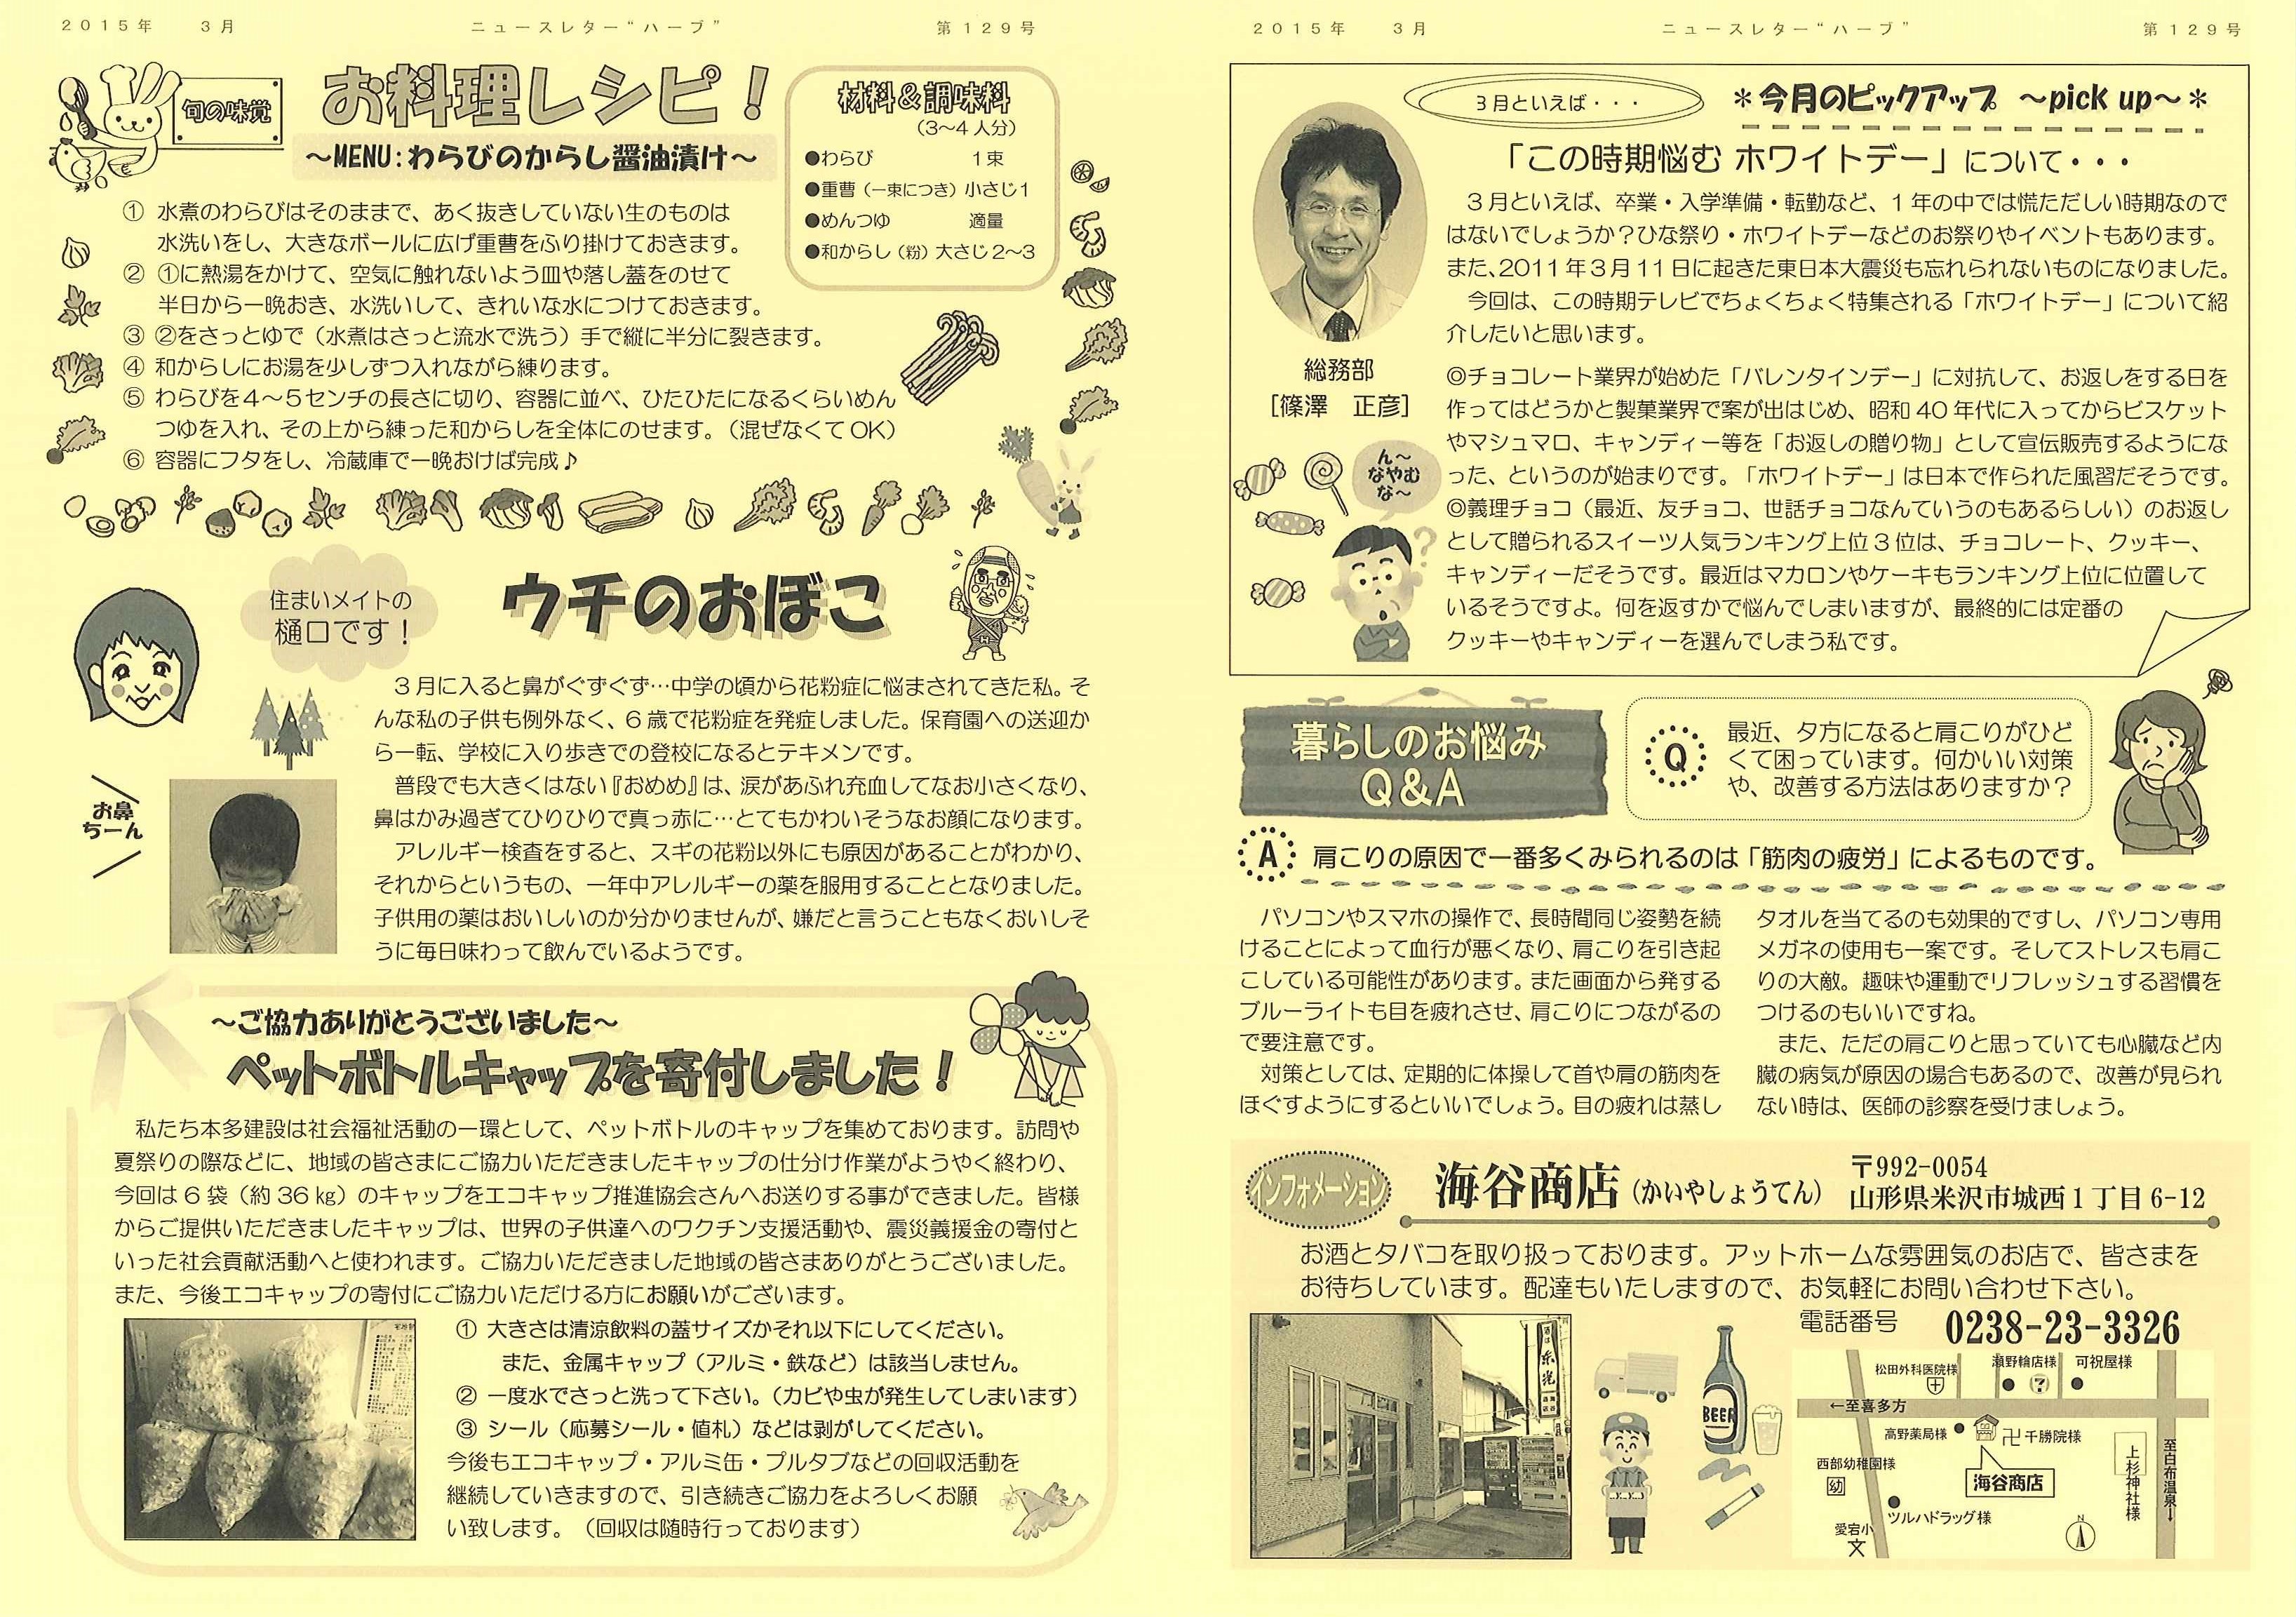 2015年　3月　ニュースレター“ハーブ”　第129号
旬の味覚
お料理レシピ！
～MENU：わらびのからし醤油漬け～
材料＆調味料
（3～4人分）
●わらび　1束
●重曹（一束につき）小さじ1
●めんつゆ　適量
●和からし（粉）大さじ2～3
① 水煮のわらびはそのままで、あく抜きしていない生のものは
水洗いをし、大きなボールに広げ重曹をふり掛けておきます。
② ①に熱湯をかけて、空気に触れないよう皿や落し蓋をのせて
半日から一晩おき、水洗いして、きれいな水につけておきます。
③ ②をさっとゆで（水煮はさっと流水で洗う）手で縦に半分に裂きます。
④ 和からしにお湯を少しずつ入れながら練ります。
⑤ わらびを4～5センチの長さに切り、容器に並べ、ひたひたになるくらいめん
つゆを入れ、その上から練った和からしを全体にのせます。（混ぜなくてOK）
⑥ 容器にフタをし、冷蔵庫で一晩おけば完成♪
住まいメイトの
樋口です！
ウチのおぼこ
お鼻
ちーん
3月に入ると鼻がぐずぐず…中学の頃から花粉症に悩まされてきた私。そ
んな私の子供も例外なく、6歳で花粉症を発症しました。保育園への送迎か
ら一転、学校に入り歩きでの登校になるとテキメンです。
普段でも大きくはない『おめめ』は、涙があふれ充血してなお小さくなり、
鼻はかみ過ぎてひりひりで真っ赤に…とてもかわいそうなお顔になります。
アレルギー検査をすると、スギの花粉以外にも原因があることがわかり、
それからというもの、一年中アレルギーの薬を服用することとなりました。
子供用の薬はおいしいのか分かりませんが、嫌だと言うこともなくおいしそ
うに毎日味わって飲んでいるようです。
～ご協力ありがとうございました～
ペットボトルキャップを寄付しました！
私たち本多建設は社会福祉活動の一環として、ペットボトルのキャップを集めております。訪問や
夏祭りの際などに、地域の皆さまにご協力いただきましたキャップの仕分け作業がようやく終わり、
今回は6袋（約36㎏）のキャップをエコキャップ推進協会さんへお送りする事ができました。皆様
からご提供いただきましたキャップは、世界の子供達へのワクチン支援活動や、震災義援金の寄付と
いった社会貢献活動へと使われます。ご協力いただきました地域の皆さまありがとうございました。
また、今後エコキャップの寄付にご協力いただける方にお願いがございます。
① 大きさは清涼飲料の蓋サイズかそれ以下にしてください。
また、金属キャップ（アルミ・鉄など）は該当しません。
② 一度水でさっと洗って下さい。（カビや虫が発生してしまいます）
③ シール（応募シール・値札）などは剥がしてください。
今後もエコキャップ・アルミ缶・プルタブなどの回収活動を
継続していきますので、引き続きご協力をよろしくお願
い致します。（回収は随時行っております）
2015年　3月　ニュースレター“ハーブ”　第129号
3月といえば・・・
＊今月のピックアップ　～pick up～＊
「この時期悩む ホワイトデー」について・・・
総務部
［篠澤　正彦］
3月といえば、卒業・入学準備・転勤など、1年の中では慌ただしい時期なので
はないでしょうか？ひな祭り・ホワイトデーなどのお祭りやイベントもあります。
また、2011年3月11日に起きた東日本大震災も忘れられないものになりました。
今回は、この時期テレビでちょくちょく特集される「ホワイトデー」について紹
介したいと思います。
◎チョコレート業界が始めた「バレンタインデー」に対抗して、お返しをする日を
作ってはどうかと製菓業界で案が出はじめ、昭和40年代に入ってからビスケット
やマシュマロ、キャンディー等を「お返しの贈り物」として宣伝販売するようにな
った、というのが始まりです。「ホワイトデー」は日本で作られた風習だそうです。
◎義理チョコ（最近、友チョコ、世話チョコなんていうのもあるらしい）のお返し
として贈られるスイーツ人気ランキング上位3位は、チョコレート、クッキー、
キャンディーだそうです。最近はマカロンやケーキもランキング上位に位置して
いるそうですよ。何を返すかで悩んでしまいますが、最終的には定番の
クッキーやキャンディーを選んでしまう私です。
ん～
なやむ
な～
?
暮らしのお悩み
Q＆A
Q
最近、夕方になると肩こりがひど
くて困っています。何かいい対策
や、改善する方法はありますか？
A
肩こりの原因で一番多くみられるのは「筋肉の疲労」によるものです。
パソコンやスマホの操作で、長時間同じ姿勢を続
けることによって血行が悪くなり、肩こりを引き起
こしている可能性があります。また画面から発する
ブルーライトも目を疲れさせ、肩こりにつながるの
で要注意です。
対策としては、定期的に体操して首や肩の筋肉を
ほぐすようにするといいでしょう。目の疲れは蒸し
タオルを当てるのも効果的ですし、パソコン専用
メガネの使用も一案です。そしてストレスも肩こ
りの大敵。趣味や運動でリフレッシュする習慣を
つけるのもいいですね。
また、ただの肩こりと思っていても心臓など内
臓の病気が原因の場合もあるので、改善が見られ
ない時は、医師の診察を受けましょう。
インフォメーション
海谷商店（かいやしょうてん）
〒992-0054
山形県米沢市城西1丁目6-12
お酒とタバコを取り扱っております。アットホームな雰囲気のお店で、皆さまを
お待ちしています。配達もいたしますので、お気軽にお問い合わせ下さい。
電話番号　0238-23-3326
東光
BEER
松田外科医院様
瀬野輪店様
可祝屋様
7
←至喜多方
高野薬局様
卍千勝院様
西部幼稚園様
幼
海谷商店
ツルハドラッグ様
愛宕小
文
上杉神社様
至白布温泉↓
N